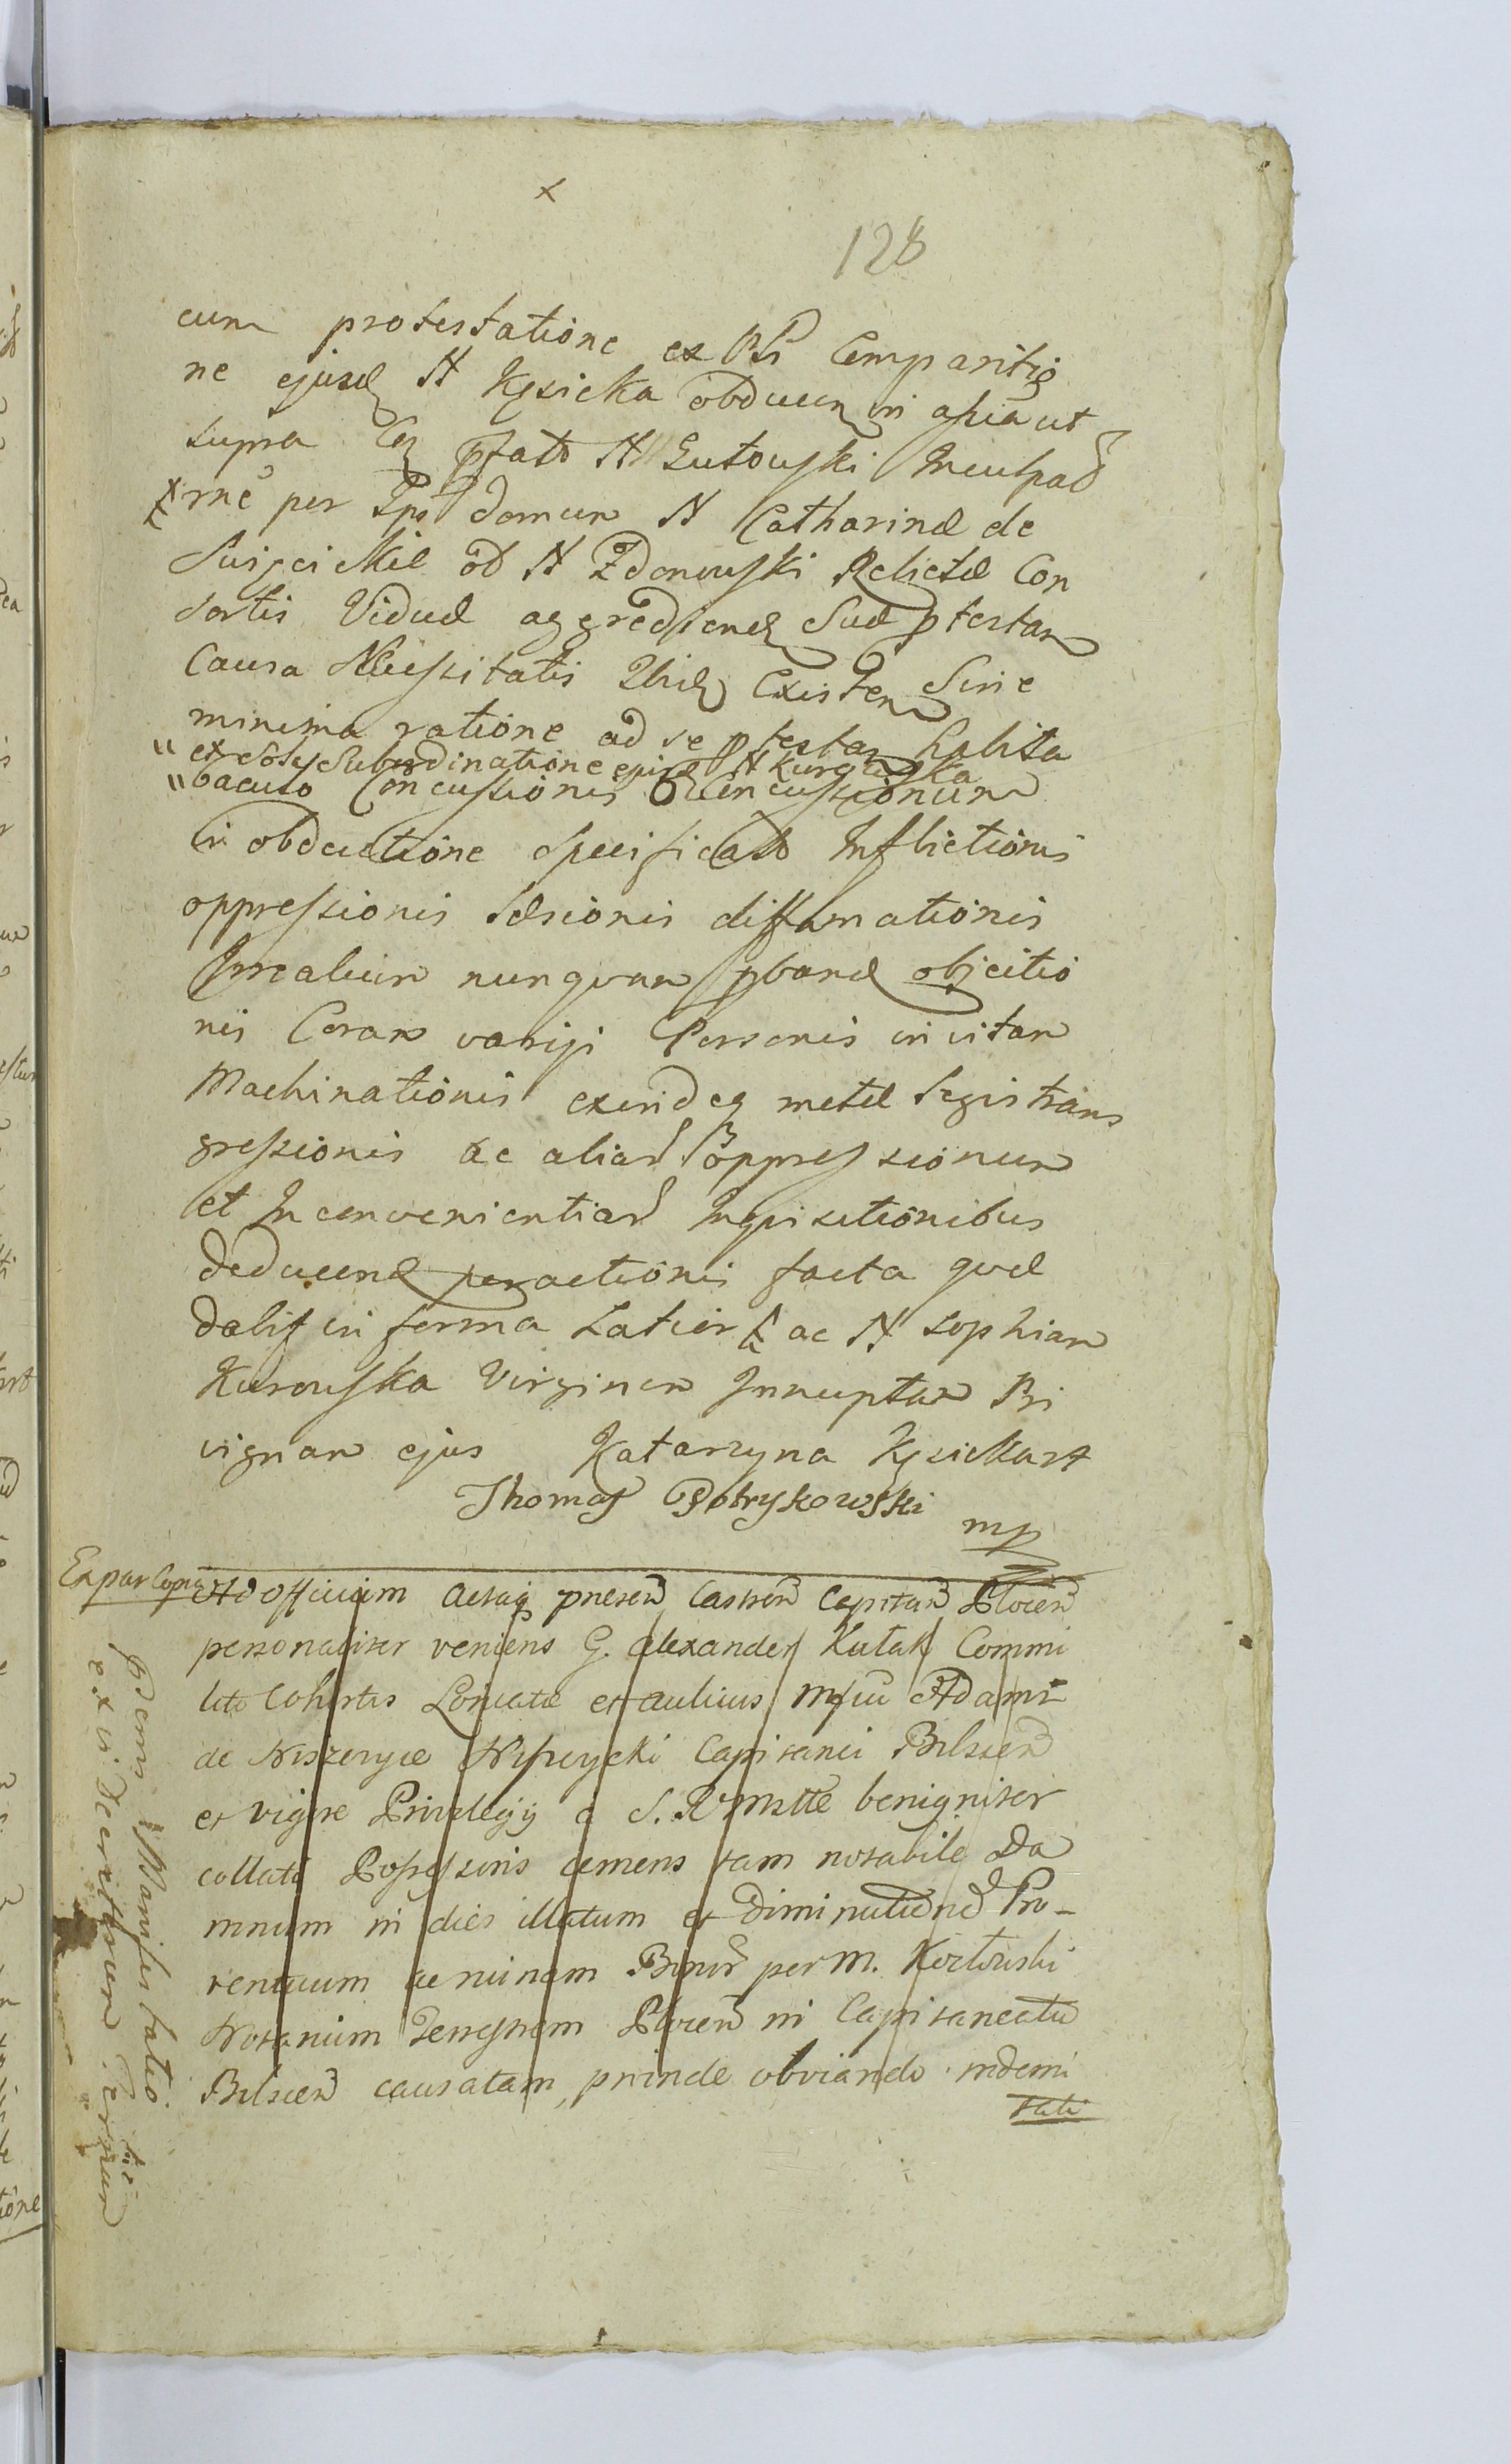 x
128
cum protestatione ex Comparitio
ne ejusd N Kęsicka obducen in asia ut
supra N Lutowski Inculpad
rne per Ips domum N Catharinæ de
Swięcickie N Zdonowski Relictæ Con
sortis Viduæ aggrediend Suæ ptestan
Causa Necessitatis Ibid Existen Sine
minima ratione ad se ptestan habita
" ex Subordinatione ejusd N Kurowska
" baculo Concussionis
in obductione specificato Inflictionis
oppressionis læsionis diffamationis
nunquam pband objeitio
nis Coram varijs Personis in vitam
Machinationis exindeq metæ legis trans
gressionis ac aliar oppressionum
et Inconvenientiar Inqisitionibus
deducend peractionis facta quæ
dabit in forma Latiori ac N Sophiam
Kurowska Virginem Innuptam Pri
vignam ejus Katarzyna Kęsicka
Thomas Potrykowski
mp
Expar Copia
Ad officium Actaq presen Castren Capitan Plocen
personaliter veniens G. Alexander Kutak Commi
lito Cohortis Loricatæ et aulicus Adami
de Niszczyce Niszczycki Capitanei Bilscen
et vigore Privilegij a S. R. Mtte benigniter
collati Possessoris cernens tam notabile Da
mnum in dies illatum et diminutioned Pro-
ventuum ac ruinam Bonor per M. Kozłowski
Notarium Terrestrem Plocen in Capitaneatu
Bilscen causatam, proinde obviando indemi
tati
Manifestatio